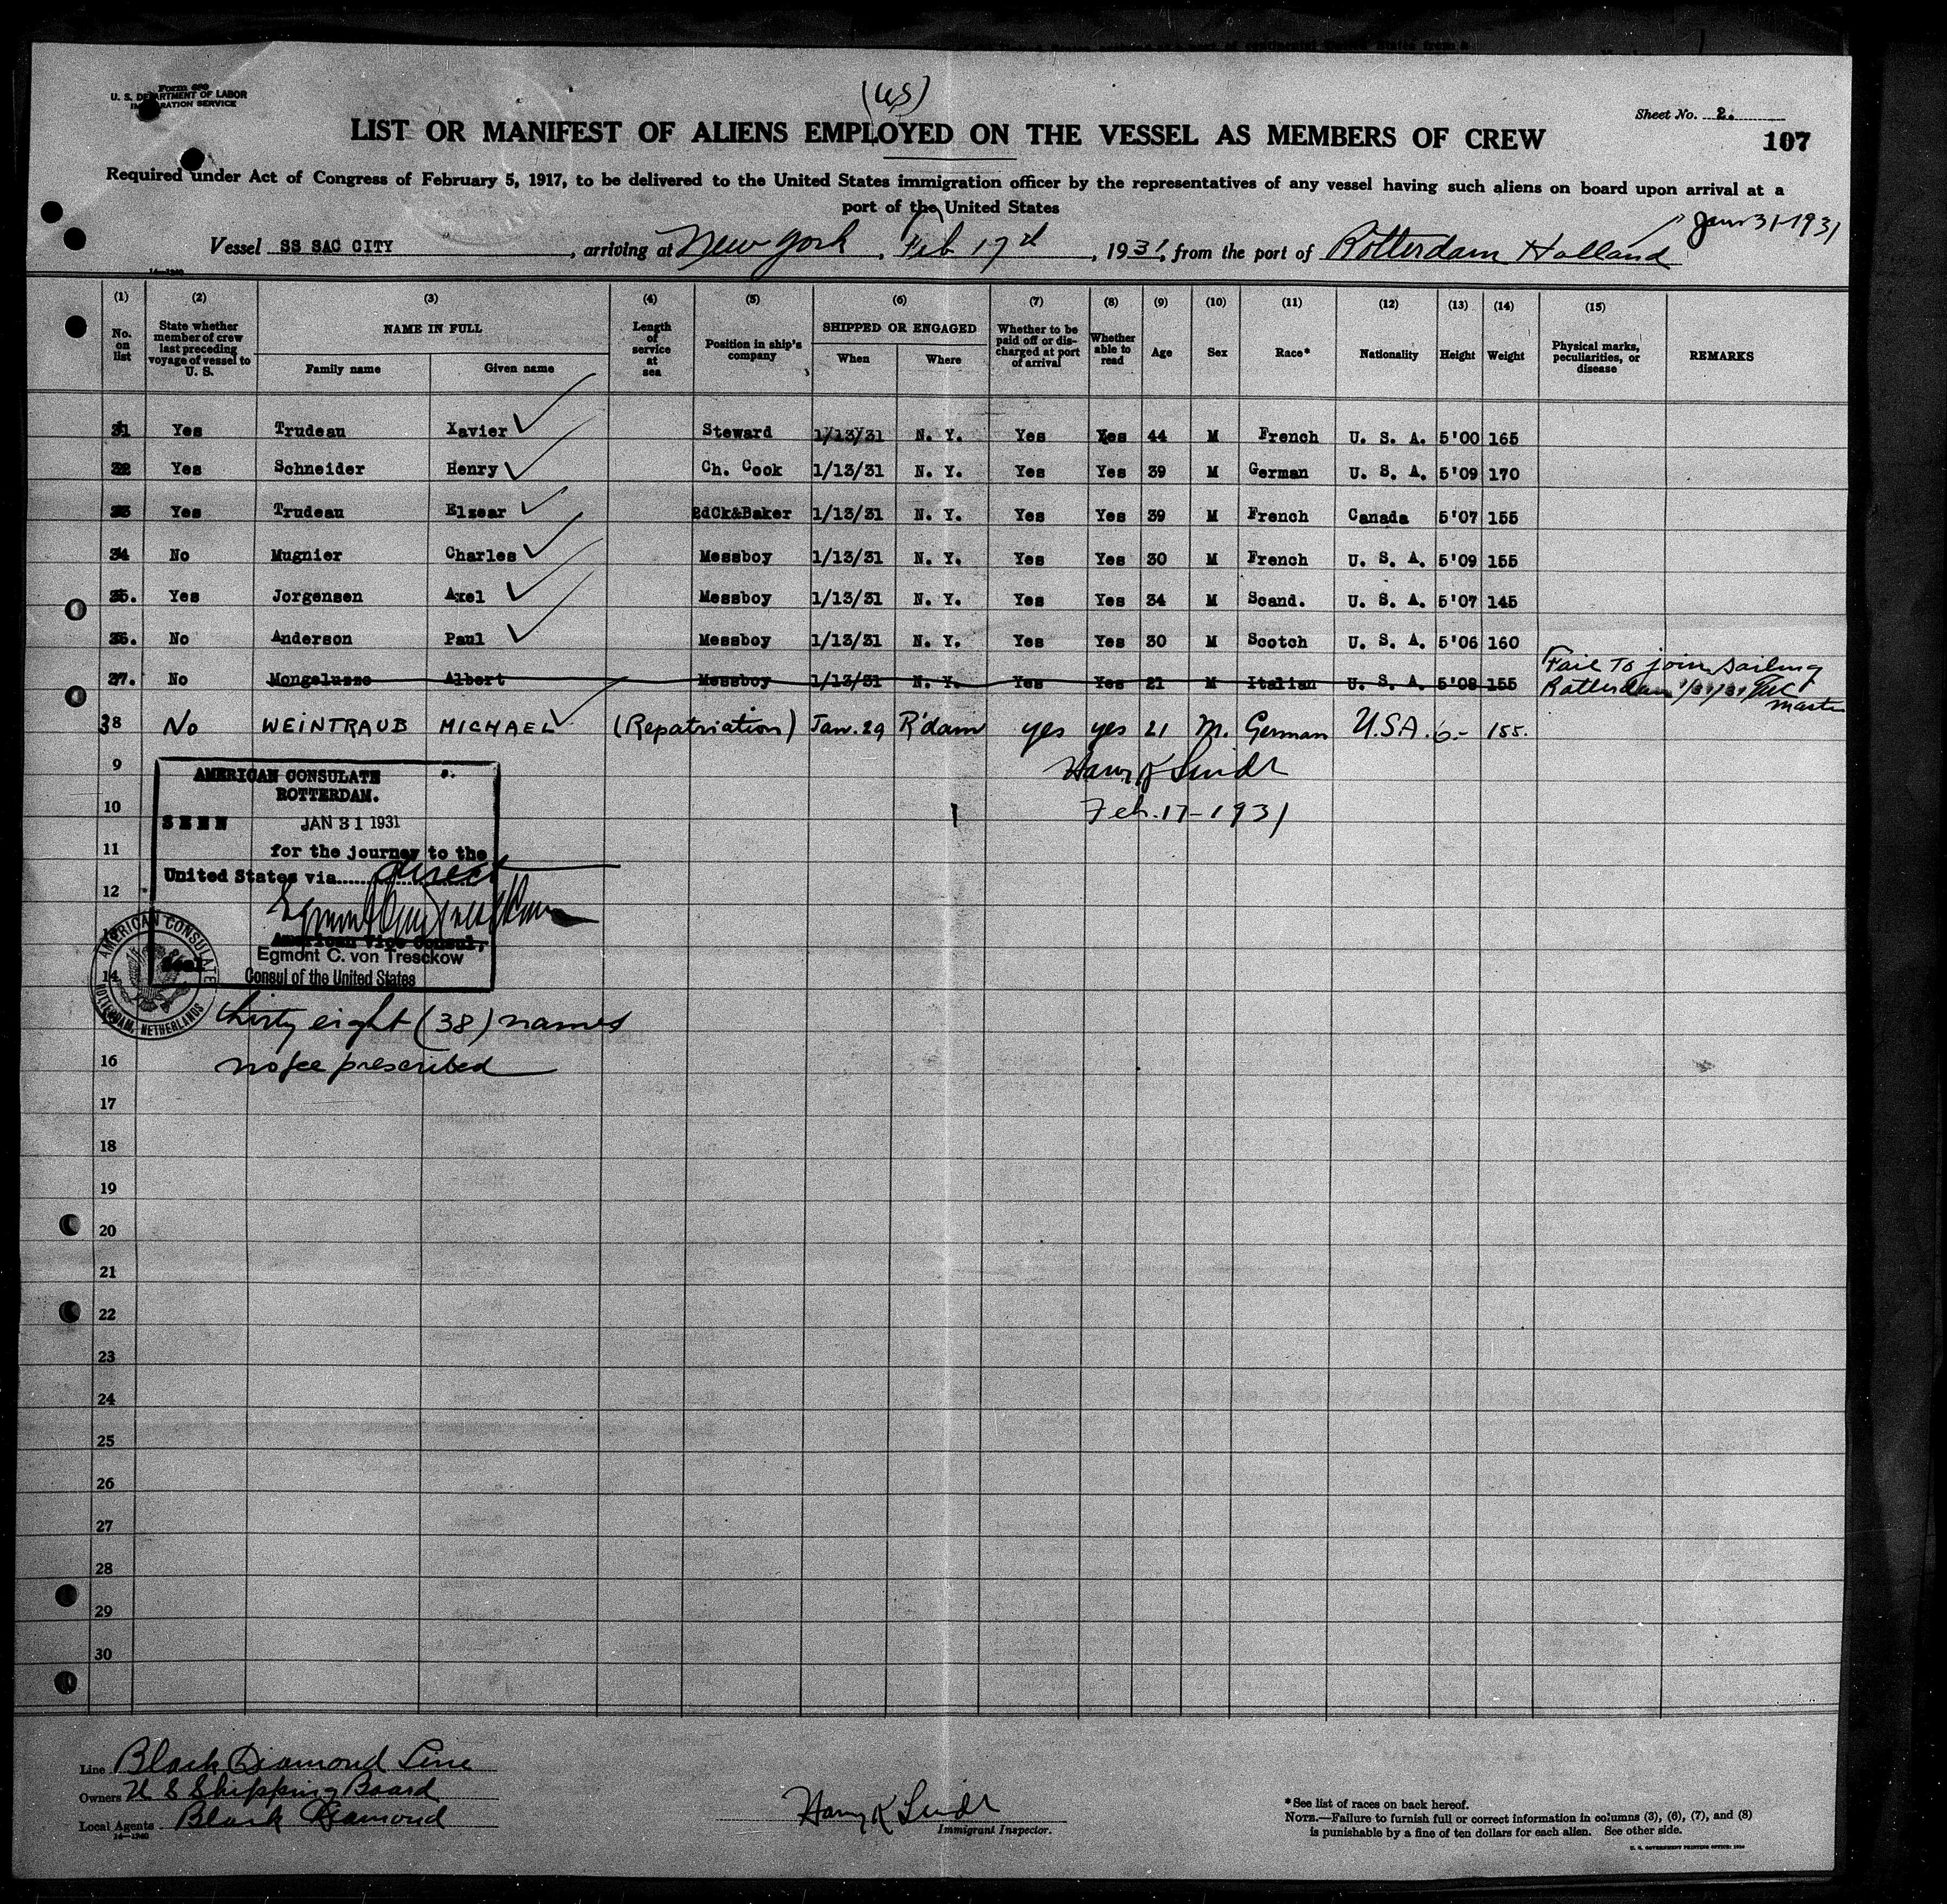 (US)
Form 680
U. S. DEPARTMENT OF LABOR
IMMIGRATION SERVICE
Sheet No. 2.
LIST OR MANIFEST OF ALIENS EMPLOYED ON THE VESSEL AS MEMBERS OF CREW
107
Required under Act of Congress of February 5, 1917, to be delivered to the United States immigration officer by the representatives of any vessel having such aliens on board upon arrival at a
port of the United States
Jan 31-1931
Vessel SS SAC CITY, arriving at New York, Feb 17th, 1931, from the port of Rotterdam Holland
14-1240
(1) (2) (3) (4) (5) (6) (7) (8) (9) (10) (11) (12) (13) (14) (15)
No. on list State whether member of crew last preceding voyage of vessel to U. S. NAME IN FULL Family name Given name Length of service at sea Position in ship's company SHIPPED OR ENGAGED When Where Whether to be paid off or discharged at port of arrival Whether able to read Age Sex Race* Nationality Height Weight Physical marks, peculiarities, or disease REMARKS
31 Yes Trudeau Xavier Steward 1/13/31 N. Y. Yes Yes 44 M French U. S. A. 5'00 165
32 Yes Schneider Henry Ch. Cook 1/13/31 N. Y. Yes Yes 39 M German U. S. A. 5'09 170
33 Yes Trudeau Elzear 2dCk&Baker 1/13/31 N. Y. Yes Yes 39 M French Canada 5'07 155
34 No Mugnier Charles Messboy 1/13/31 N. Y. Yes Yes 30 M French U. S. A. 5'09 155
35. Yes Jorgensen Axel Messboy 1/13/31 N. Y. Yes Yes 34 M Scand. U. S. A. 5'07 145
36. No Anderson Paul Messboy 1/13/31 N. Y. Yes Yes 30 M Scotch U. S. A. 5'06 160
37. No Mongelusso Albert Messboy 1/13/31 N. Y. Yes Yes 21 M Italian U. S. A. 5'08 155 Fail to join sailing
Rotterdam 1/31/31
master
38 No WEINTRAUB MICHAEL (Repatriation) Jan. 29 R'dam yes yes 21 M. German U.S.A. 6- 155.
9
Feb. 17-1931
10
11
12
14
16
17
18
19
20
21
22
23
24
25
26
27
28
29
30
AMERICAN CONSULATE
ROTTERDAM.
SEEN JAN 31 1931
for the journey to the
United States via direct
American Vice Consul,
Egmont C. von Tresckow
Consul of the United States
AMERICAN CONSULATE
ROTTERDAM, NETHERLANDS
thirty eight (38) names
no fee prescribed
Line Black Diamond Line
Owners U S Shipping Board
Local Agents Black Diamond
14-1240
Immigrant Inspector.
*See list of races on back hereof.
NOTE.—Failure to furnish full or correct information in columns (3), (6), (7), and (8)
is punishable by a fine of ten dollars for each alien. See other side.